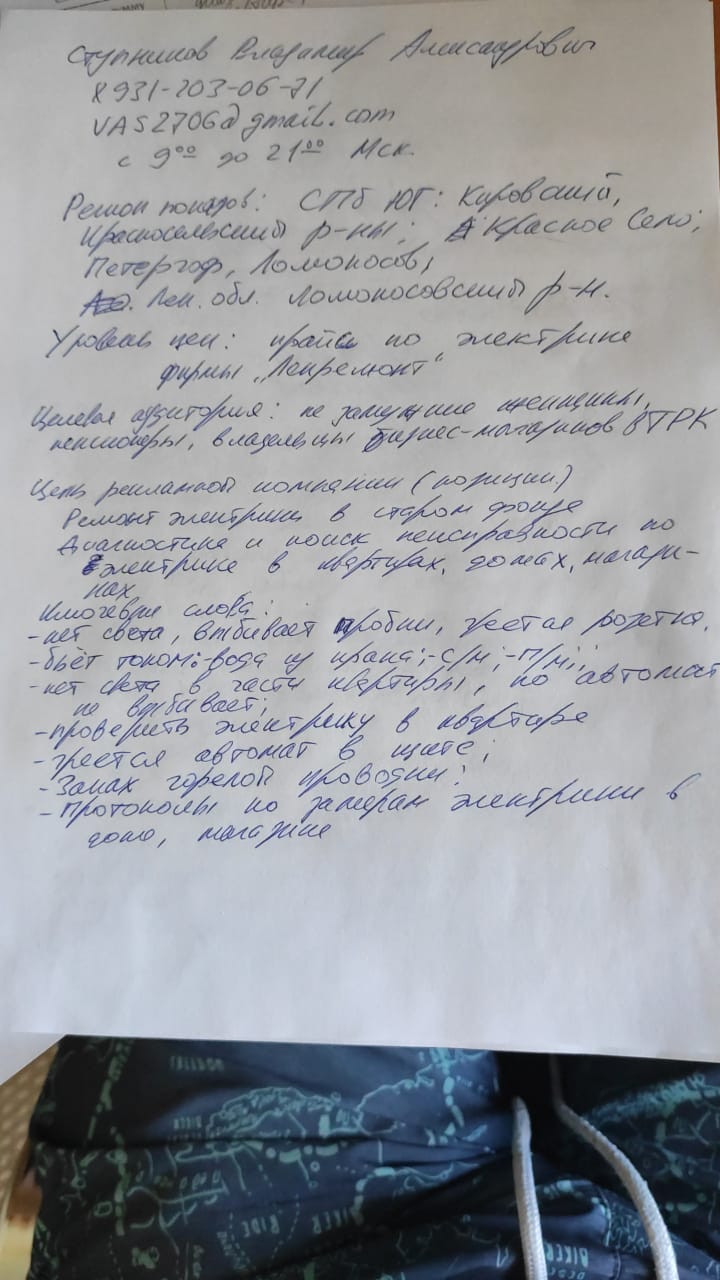 Ступников Владимир Александрович
8931-203-06-71
VAS2706@gmail.com
с 9⁰⁰ до 21⁰⁰ Мск.
Регион показов: СПб ЮГ: Кировский,
Красносельский р-ны; Красное Село;
Петергоф, Ломоносов,
Лен. обл. Ломоносовский р-н.
Уровень цен: прайс по электрике
фирмы „Ленремонт"
Целевая аудитория: не замужние женщины,
пенсионеры, владельцы бизнес-магазинов в ТРК
Цель рекламной компании (позиции)
Ремонт электрики в старом фонде
Диагностика и поиск неисправности по
электрике в квартирах, домах, магази-
нах
Ключевые слова:
-нет света, выбивает пробки, греется розетка,
-бьёт током:-вода из крана;-с/м;-п/м;
-нет света в части квартиры, но автомат
не выбивает;
-проверить электрику в квартире
-греется автомат в щите;
-Запах горелой проводки;
-Протоколы по замерам электрики в
доме, магазине
BIKER
RIDE
BIKER
BIKER